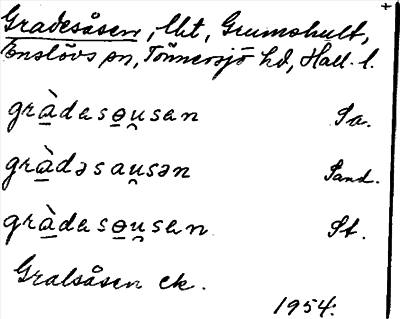 Gradesåsen, lht, Grumshult,
Enslövs sn, Tönnersjö hd, Hall. l.
grà̱dasɵ̱u̯san Sa.
grà̱dəsau̯sən Sand.
grà̱dasɵ̱u̯sen St.
Gralsåsen ek.
1954.